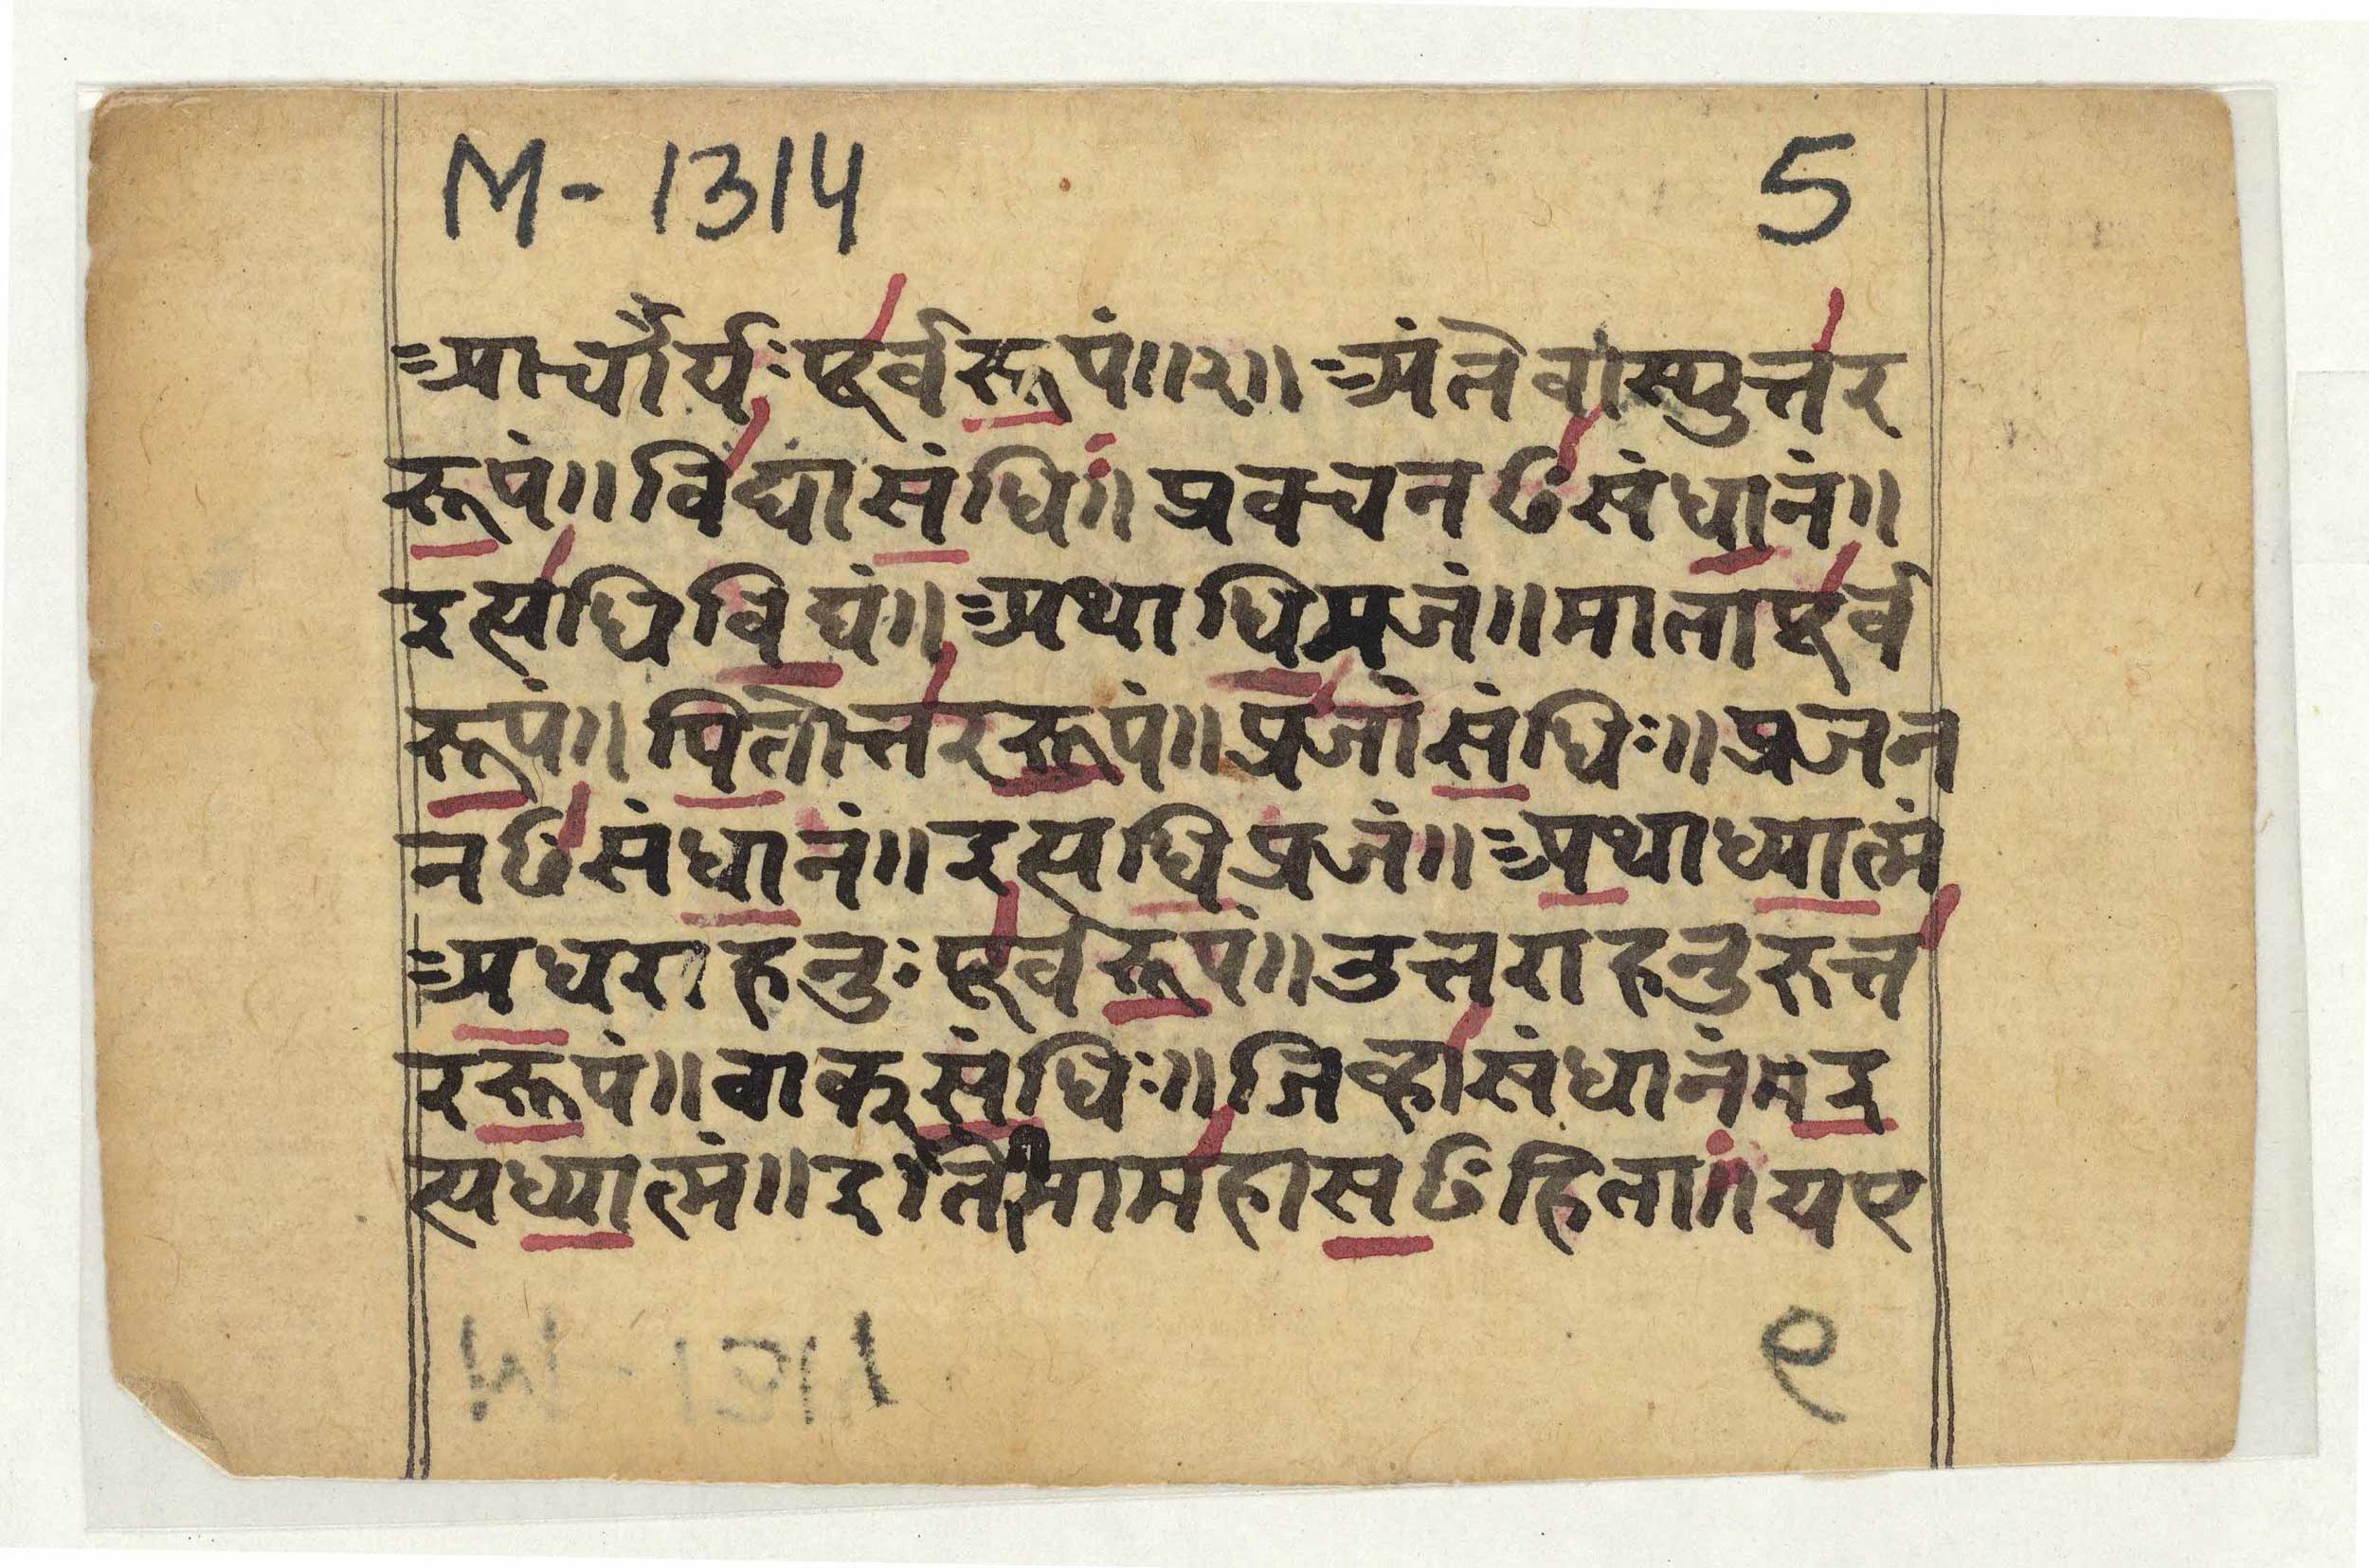 M - 1314 5
आचार्यः पूर्वरूपं॥२॥ अंतेवास्युत्तर
रूपं॥ विद्यासंधिः॥ प्रवचनꣳसंधानं॥
इत्यधिविद्यं॥ अथाधिप्रजं॥ मातापूर्व
रूपं॥ पितोत्तररूपं॥ प्रजासंधिः॥ प्रजन
नꣳसंधानं॥ इत्यधिप्रजं॥ अथाध्यात्मं
अधराहनुः पूर्वरूपं॥ उत्तराहनुरुत्त
ररूपं॥ वाक्संधिः॥ जिव्हासंधानं॥ इ
त्यध्यात्मं॥ इतीमामहासꣳहिता॥ यए